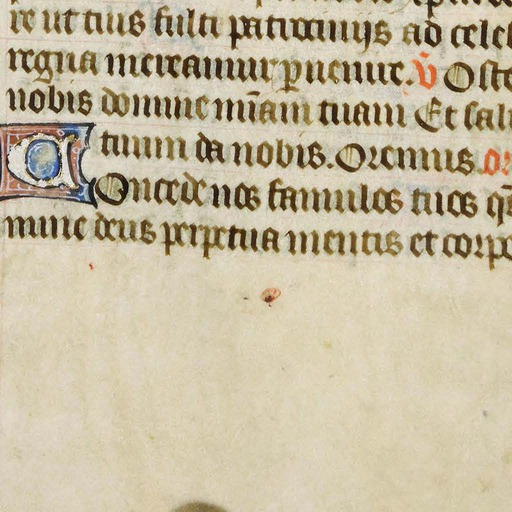 re ut tuis fulti patrociniis ad celes
regna mereamur ꝑuenire. v̄ Oste
nobis domine mīam tuam Et salu
tuum da nobis. Oremus. or
Concede nos famulos tuos qs̄
mine deus perpetua mentis et corpo